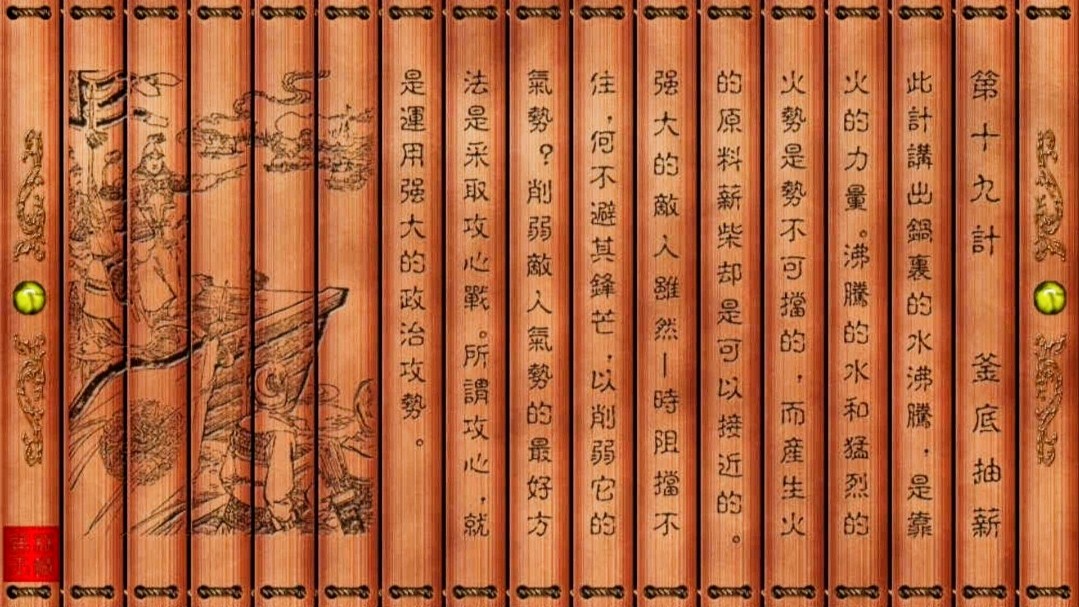 第十九計 釜底抽薪
此計講出鍋裏的水沸騰，是靠
火的力量。沸騰的水和猛烈的
火勢是勢不可擋的，而産生火
的原料薪柴却是可以接近的。
强大的敵人雖然一時阻擋不
住，何不避其鋒芒，以削弱它的
氣勢？削弱敵人氣勢的最好方
法是采取攻心戰。所謂攻心，就
是運用强大的政治攻勢。